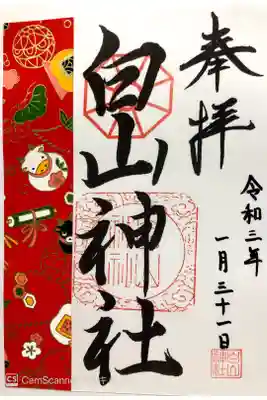 奉拝
白山神社
令和三年
一月三十一日
CamScanner